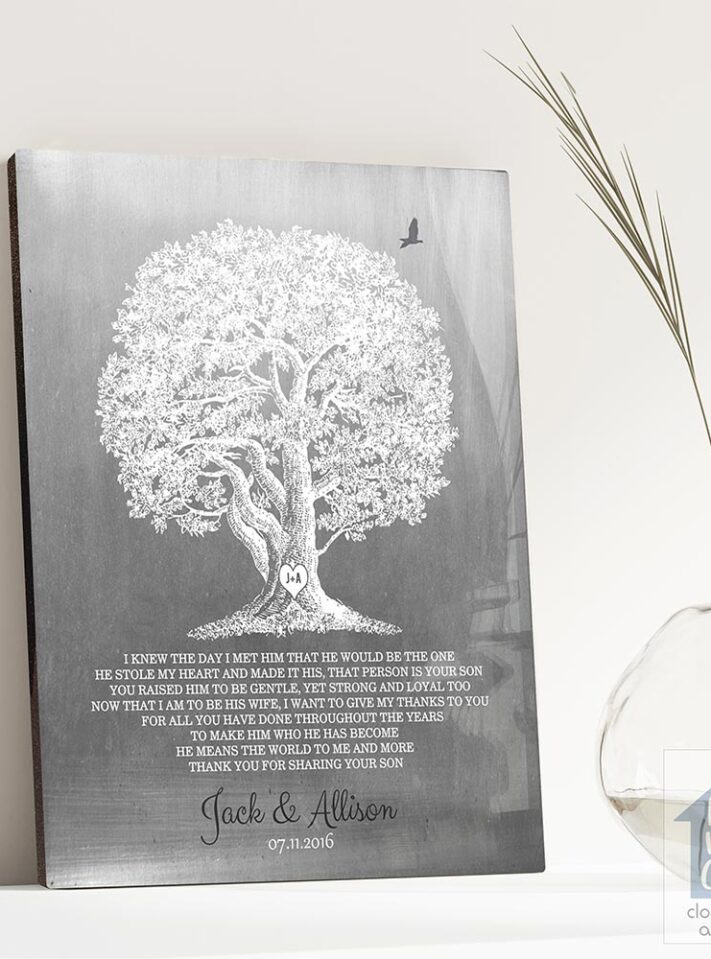 J+A
I KNEW THE DAY I MET HIM THAT HE WOULD BE THE ONE
HE STOLE MY HEART AND MADE IT HIS, THAT PERSON IS YOUR SON
YOU RAISED HIM TO BE GENTLE, YET STRONG AND LOYAL TOO
NOW THAT I AM TO BE HIS WIFE, I WANT TO GIVE MY THANKS TO YOU
FOR ALL YOU HAVE DONE THROUGHOUT THE YEARS
TO MAKE HIM WHO HE HAS BECOME
HE MEANS THE WORLD TO ME AND MORE
THANK YOU FOR SHARING YOUR SON
Jack & Allison
07.11.2016